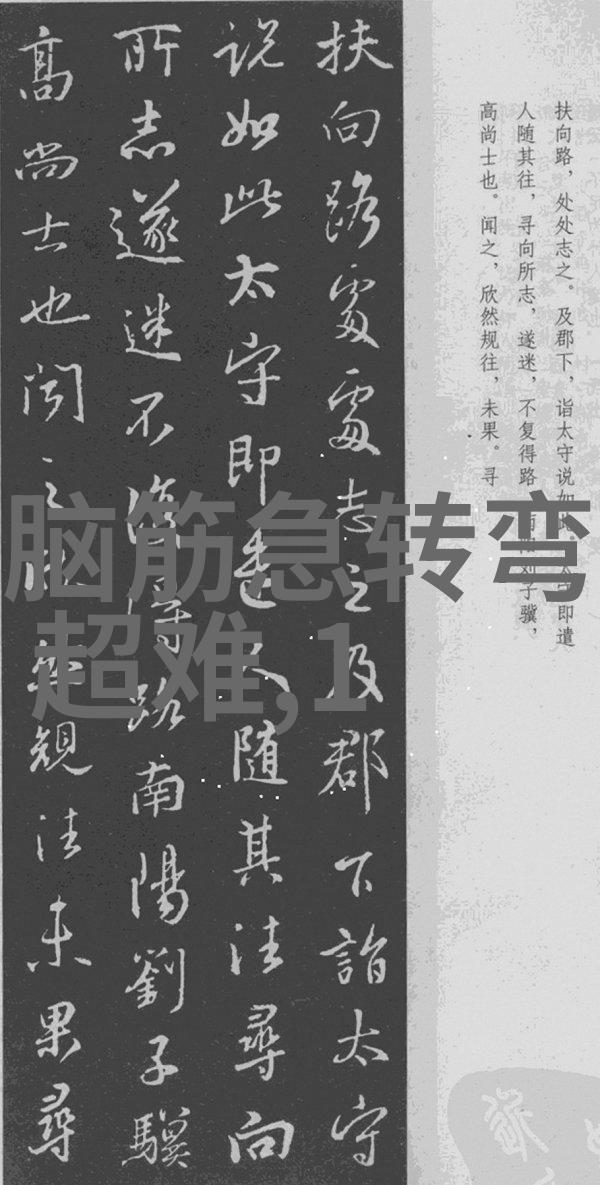 扶向路處處志之及郡下詣太守
说如此太守即遣人随其往尋向
所志遂迷不復得路南陽劉子驥
高尚士也闻之欣然規往未果尋
扶向路，处处志之。及郡下，诣太守说如此。太守即遣
人随其往，寻向所志，遂迷，不复得路。南阳刘子骥，
高尚士也。闻之，欣然规往，未果。寻
脑筋急转弯
超难,1